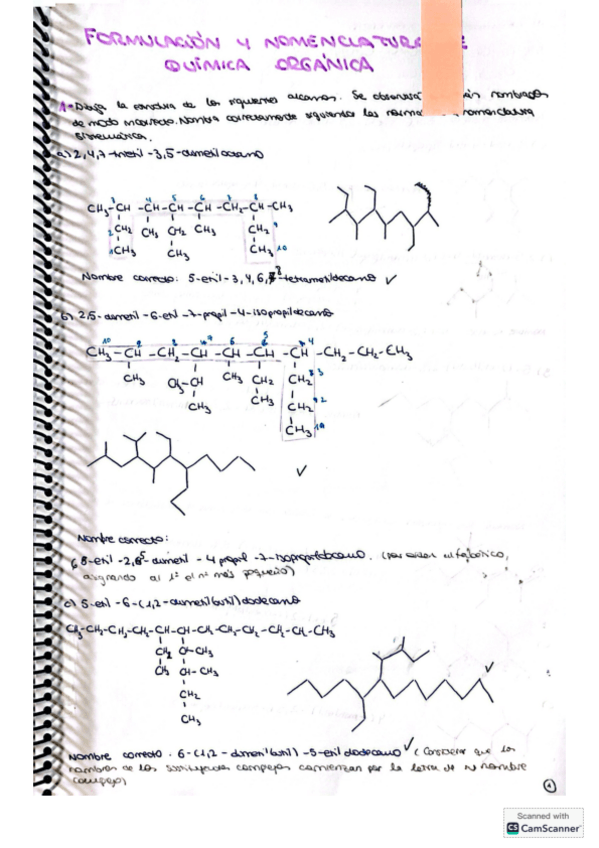 FORMULACIÓN Y NOMENCLATURA DE
QUÍMICA ORGÁNICA
1- Dibuja la estructura de los siguientes alcanos. Se observará nombrados
de modo incorrecto. Nombra correctamente siguiendo las normas nomenclatura
sistemática.
a) 2,4,7-trietil-3,5-dimetiloctano
3 4 5 6 7 8
CH3-CH-CH-CH-CH-CH2-CH-CH3
2 CH2 CH3 CH2 CH3 CH2 9
1 CH3 CH3 CH3 10
Nombre correcto: 5-etil-3,4,6,8-tetrametildecano ✓
b) 2,5-dimetil-6-etil-7-propil-4-isopropildecano
10 9 8 7 6 5 4
CH3-CH-CH2-CH-CH-CH-CH-CH2-CH2-CH3
CH3 CH3-CH CH3 CH2 CH2 3
CH3 CH3 CH2 2
CH3 1
✓
Nombre correcto:
5-etil-2,6-dimetil-4-propil-7-isopropildecano. (por orden alfabético,
asignando al 1º el nº más pequeño)
c) 5-etil-6-(1,2-dimetilbutil)dodecano
CH3-CH2-CH2-CH2-CH-CH-CH2-CH2-CH2-CH2-CH2-CH3
CH2 CH-CH3
CH3 CH-CH3
CH2
CH3
✓
Nombre correcto: 6-(1,2-dimetilbutil)-5-etildodecano ✓ (Considerar que los
nombres de los sustituyentes complejos comienzan por la letra de su nombre
complejo)
1
Scanned with
CS CamScanner